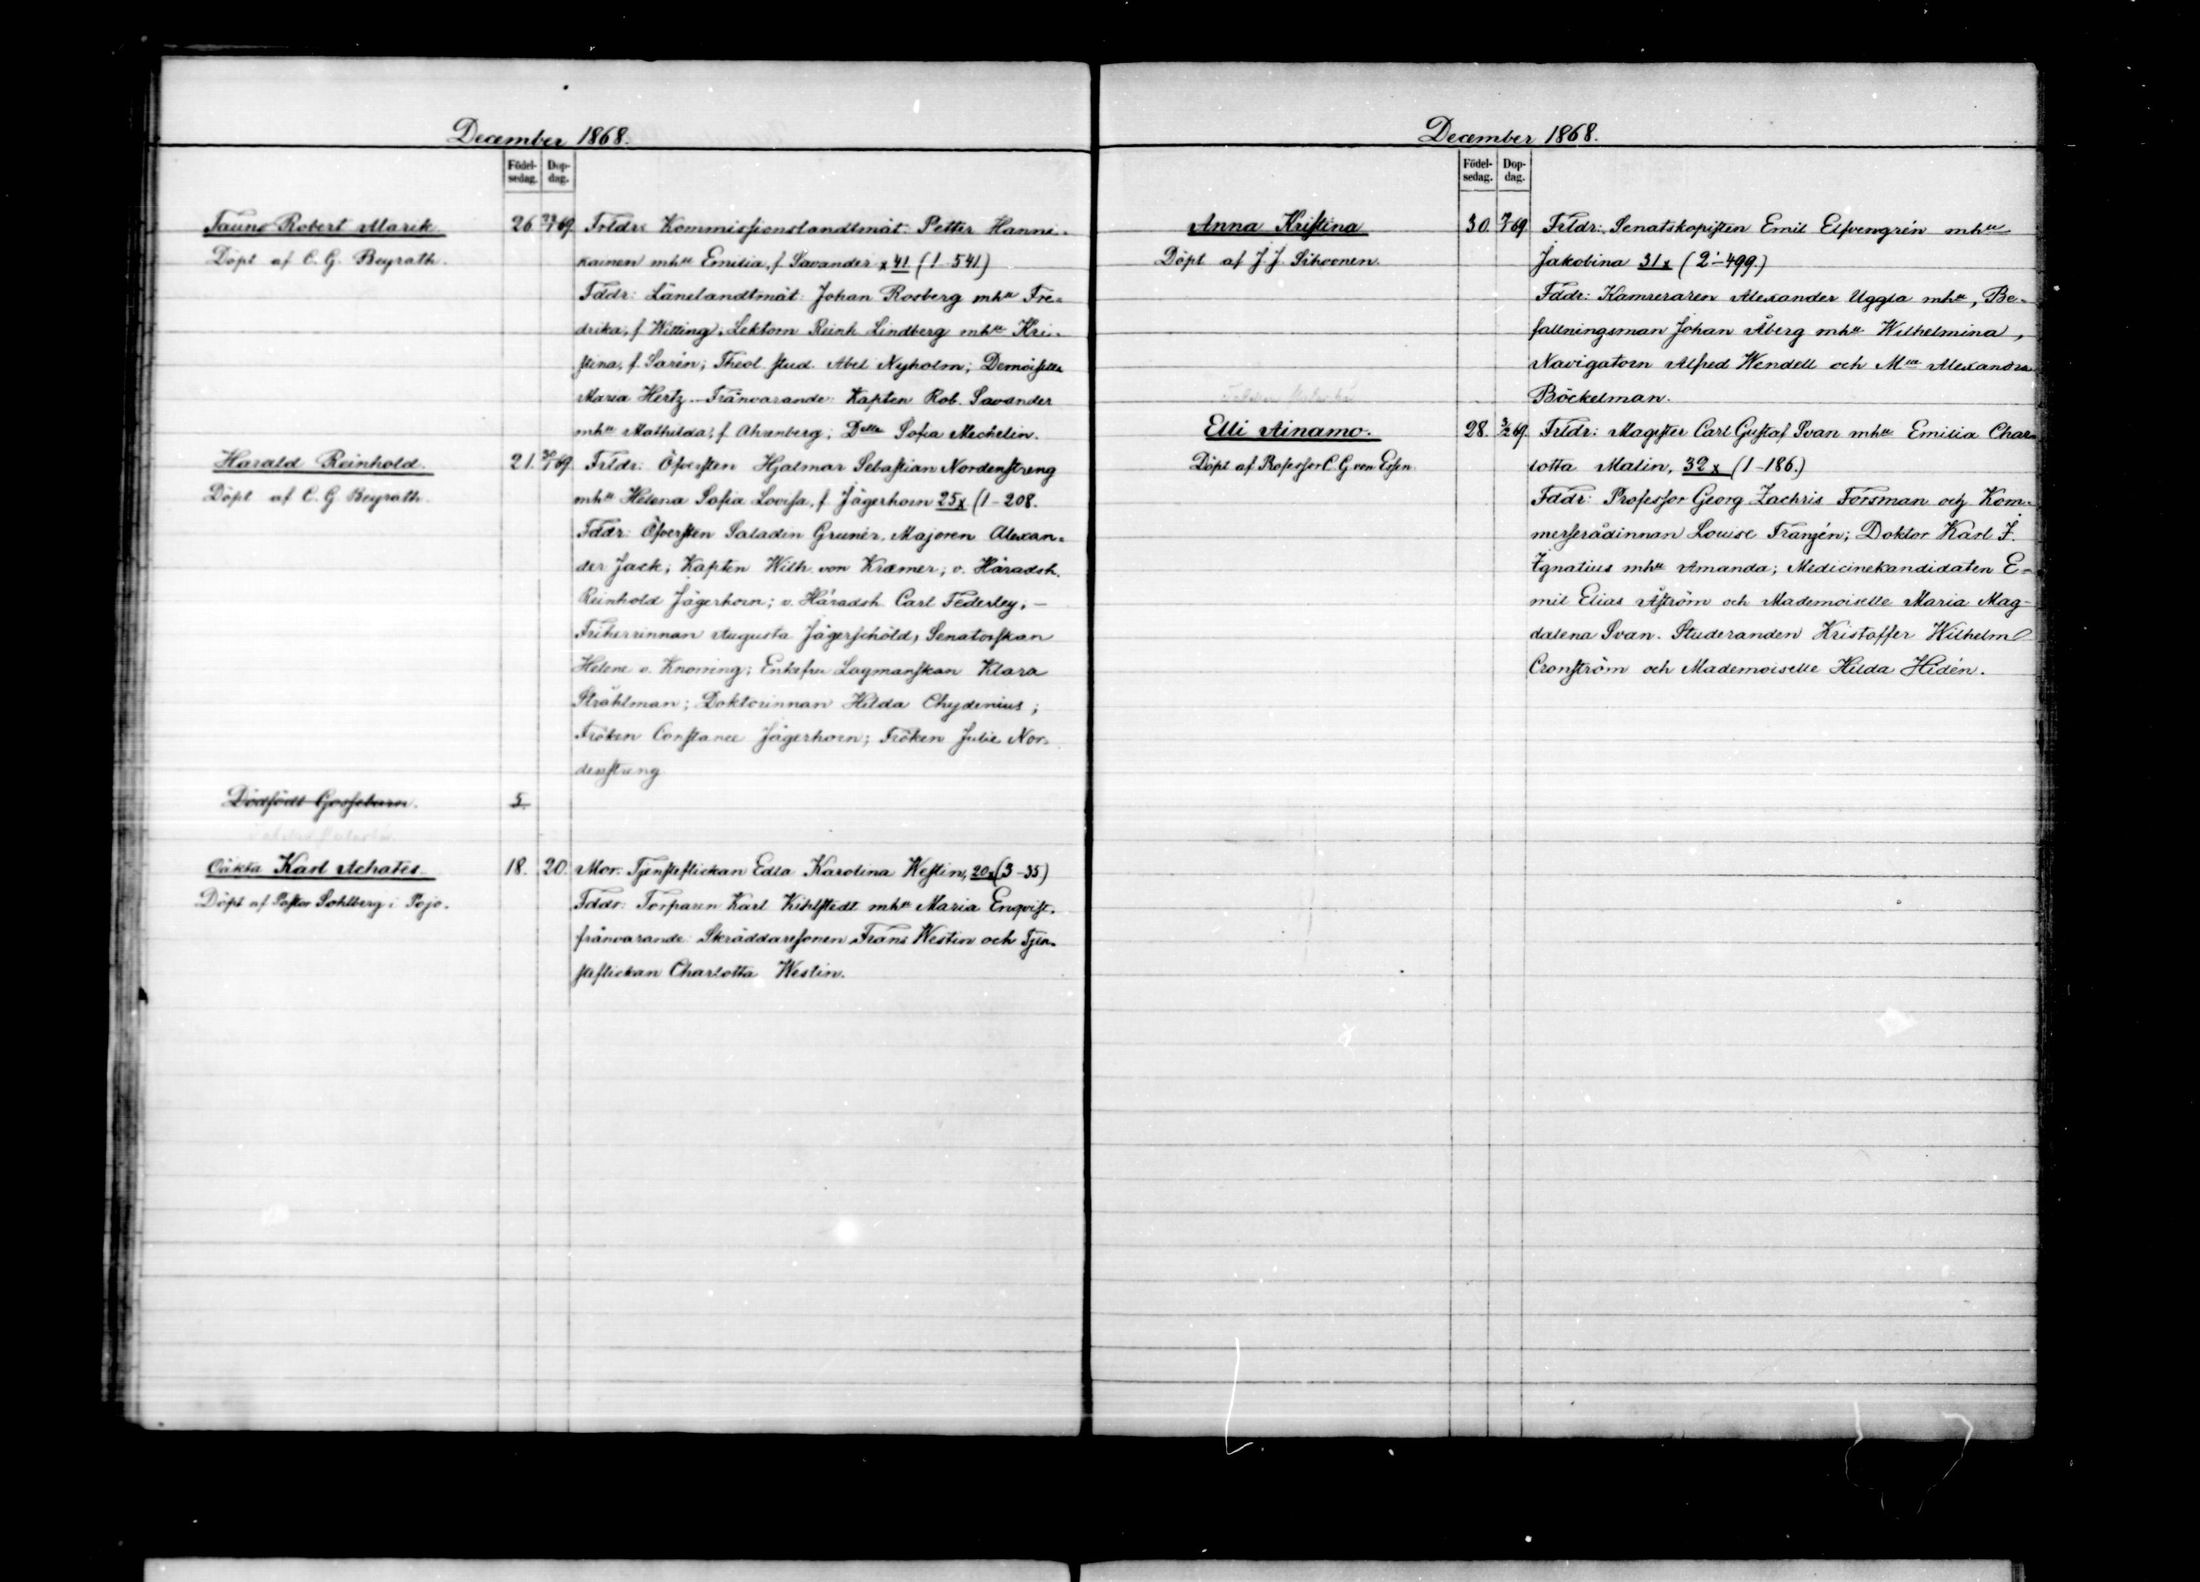 December 1868.
Födel-
sedag.
Dop-
dag.
Tauno Robert Alarik
26
Döpt af C. G. Beyrath.
Frldr: Kommissionslandtmät: Petter Hanni-
kainen mhu Emilia, f. Savander x 41 (1-541)
Fddr: Länelandtmät: Johan Rosberg mhu Fre-
drika, f Witting; Lektorn Reinh. Lindberg mhu Kri-
stina, f. Sarén; Theol. stud. Abel Nyholm; Demoiselle
Maria Hertz. Frånvarande: Kapten Rob. Savander
mhu Mathilda, f. Ahrenberg; Delle Sofia Mechelin.
Harald Reinhold.
21.
Döpt af C. G. Beyrath.
Frldr: Öfversten Hjalmar Sebastian Nordenstreng
mhu Helena Sofia Lovisa, f. Jägerhorn 25x (1-208.
Fddr: Öfversten Saladin Grunér, Majoren Alexan-
der Jack; Kapten Wilh. von Kræmer; v. Häradsh.
Reinhold Jägerhorn; v. Häradsh. Carl Federley. —
Friherrinnan Augusta Jägerschöld, Senatorskan
Helene v. Knorring; Enkefru Lagmanskan Klara
Stråhlman; Doktorinnan Hilda Chydenius;
Fröken Constance Jägerhorn; Fröken Julie Nor-
denstreng
Dödfödt Gossebarn.
5.
Oäkta Karl Achates
18.
20.
Döpt af Pastor Sohlberg i Pojo.
Mor: Tjenstflickan Edla Karolina Westin, 20x (3-35)
Fddr: Torparen Karl Kihlstedt mhu Maria Enqvist.
frånvarande: Skräddaresonen Frans Westin och Tjen-
steflickan Charlotta Westin.
December 1868.
Födel-
sedag.
Dop-
dag.
Anna Kristina
30.
Döpt af J. J. Sihvonen.
Frldr: Senatskopisten Emil Elfvengrén mhu
Jakobina 31x (2-499.)
Fddr: Kamreraren Alexander Uggla mhu, Be-
fallningsman Johan Åberg mhu Wilhelmina,
Navigatorn Alfred Wendell och Mlle Alexandra
Böckelman.
Elli Ainamo.
28.
Döpt af Professor C. G. von Essen.
Frldr: Magister Carl Gustaf Svan mhu Emilia Char-
lotta Malin, 32x (1-186.)
Fddr: Professor Georg Zachris Forsman och Kom-
merserådinnan Louise Franzén; Doktor Karl F.
Ignatius mhu Amanda; Medicinekandidaten E-
mil Elias Åström och Mademoiselle Maria Mag-
dalena Svan. Studeranden Kristoffer Wilhelm
Cronström och Mademoiselle Hilda Hidén.